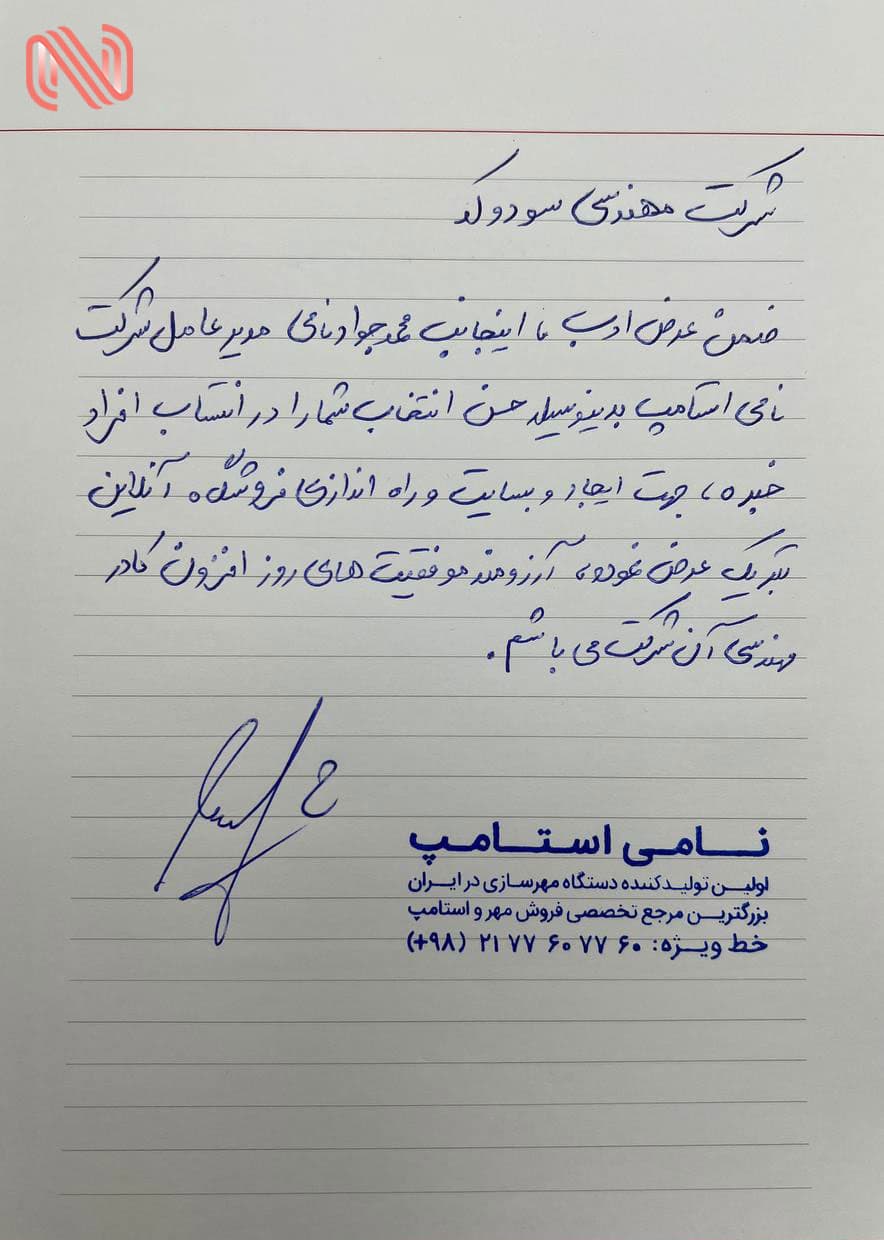 شرکت مهندسی سودوکد
ضمن عرض ادب ، اینجانب محمدجواد نامی مدیر عامل شرکت
نامی استامپ بدینوسیله حسن انتخاب شما را در انتساب افراد
خبره ، جهت ایجاد وبسایت و راه اندازی فروشگاه آنلاین
تبریک عرض نموده ، آرزومند موفقیت های روز افزون کادر
مهندسی آن شرکت می باشم .
نامی استامپ
اولین تولیدکننده دستگاه مهرسازی در ایران
بزرگترین مرجع تخصصی فروش مهر و استامپ
خط ویژه: ۶۰ ۷۷ ۶۰ ۷۷ ۲۱ (۹۸+)